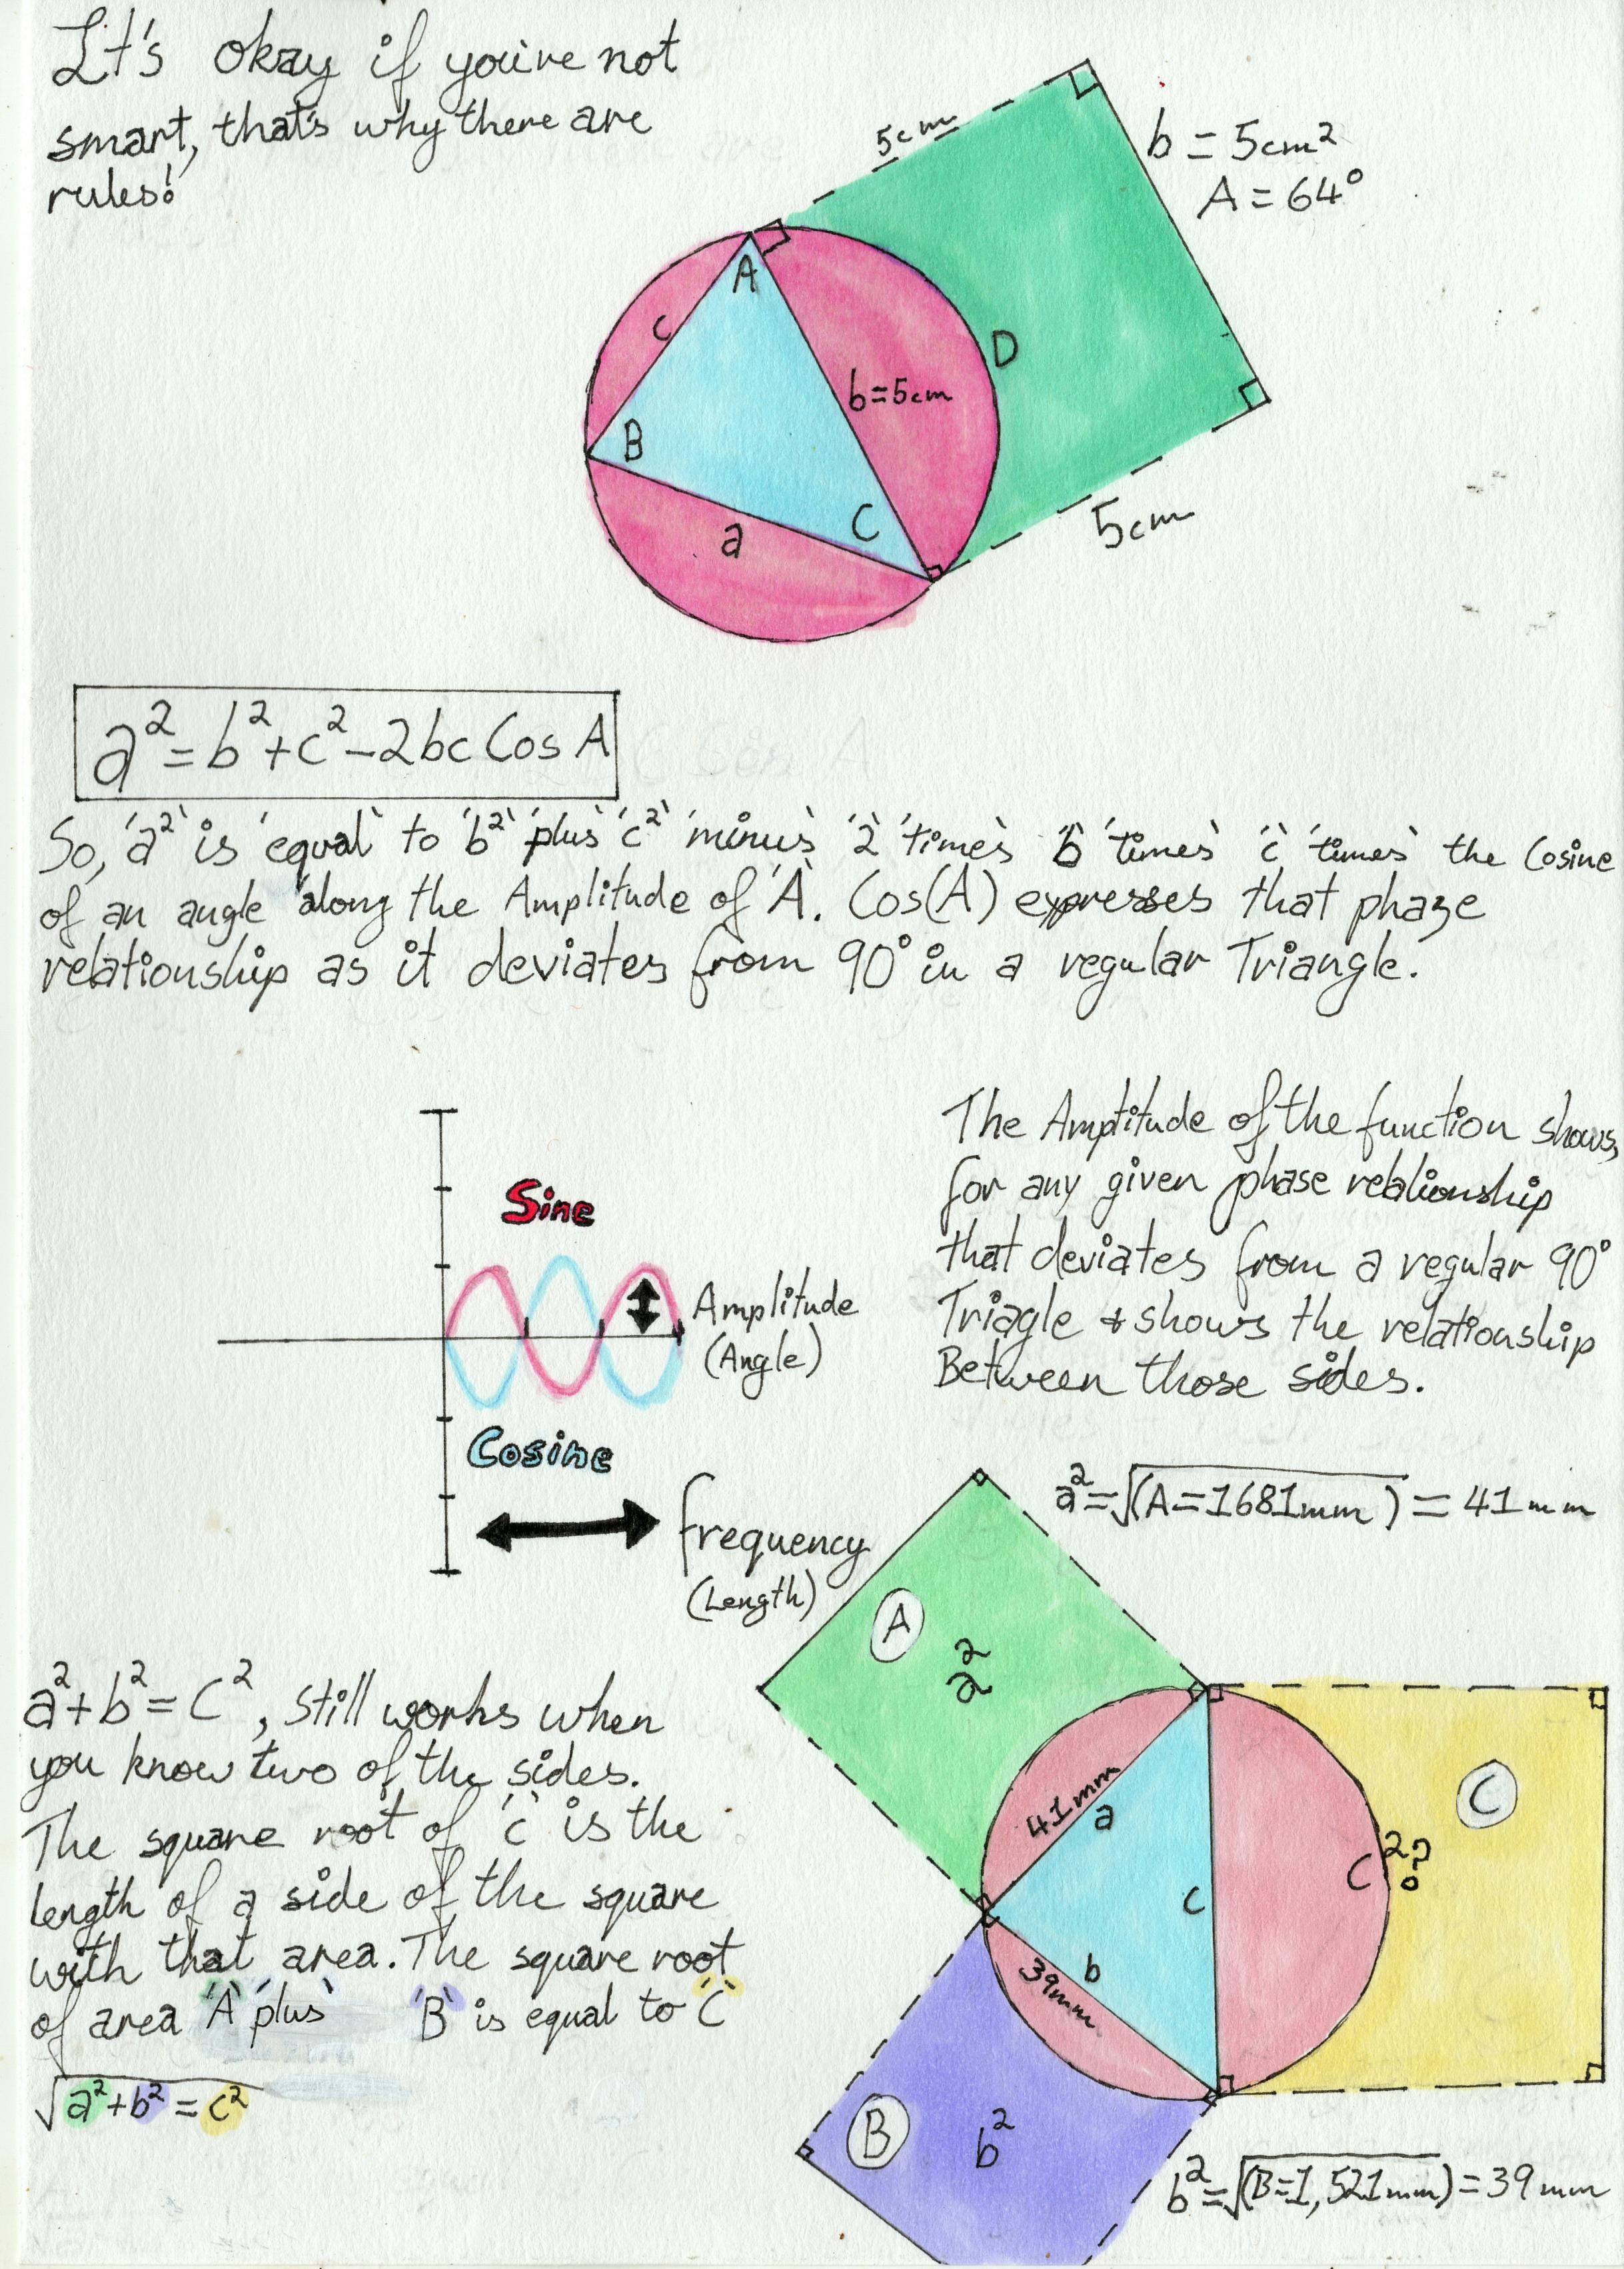 It's okay if you're not
smart, that's why there are
rules!
5cm
b = 5cm²
A = 64°
A
c
D
b=5cm
B
C
a
5cm
a²=b²+c²-2bc Cos A
So, 'a²' is 'equal' to 'b²' 'plus' 'c²' 'minus' '2' 'times' 'b' 'times' 'c' 'times' the Cosine
of an angle along the Amplitude of 'A'. Cos(A) expresses that phaze
relationship as it deviates from 90° in a regular Triangle.
The Amplitude of the function shows,
for any given phase relationship
that deviates from a regular 90°
Triagle & shows the relationship
Between those sides.
Sine
Amplitude
(Angle)
Cosine
frequency
(Length)
a²=√(A=1681mm) = 41mm
A
a²
C
41mm
a
c²?
c
b
39mm
B
b²
b²=√(B=1,521mm)=39mm
a²+b²=c², still works when
you know two of the sides.
The square root of 'c' is the
length of a side of the square
with that area. The square root
of area 'A' 'plus' 'B' is equal to 'C'
√a²+b²=c²